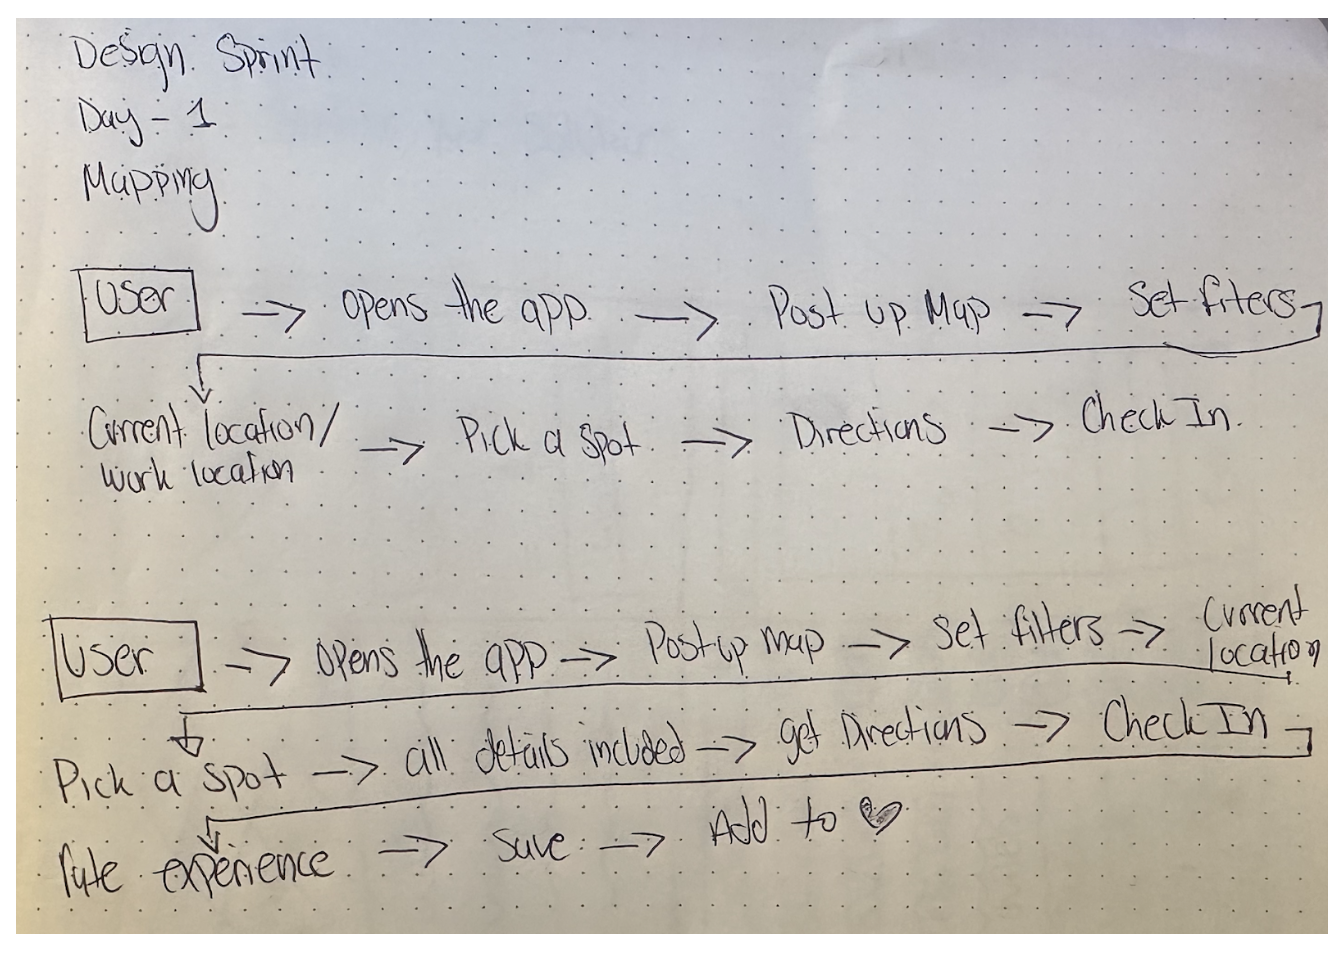 Design Sprint
Day - 1
Mapping
User → opens the app → Post Up Map → Set fiters
Current location/ work location → Pick a Spot → Directions → Check In.
User → opens the app → Postup map → Set filters → Current location
Pick a spot → all details included → get Directions → Check In
rate experience → save → Add to ♥